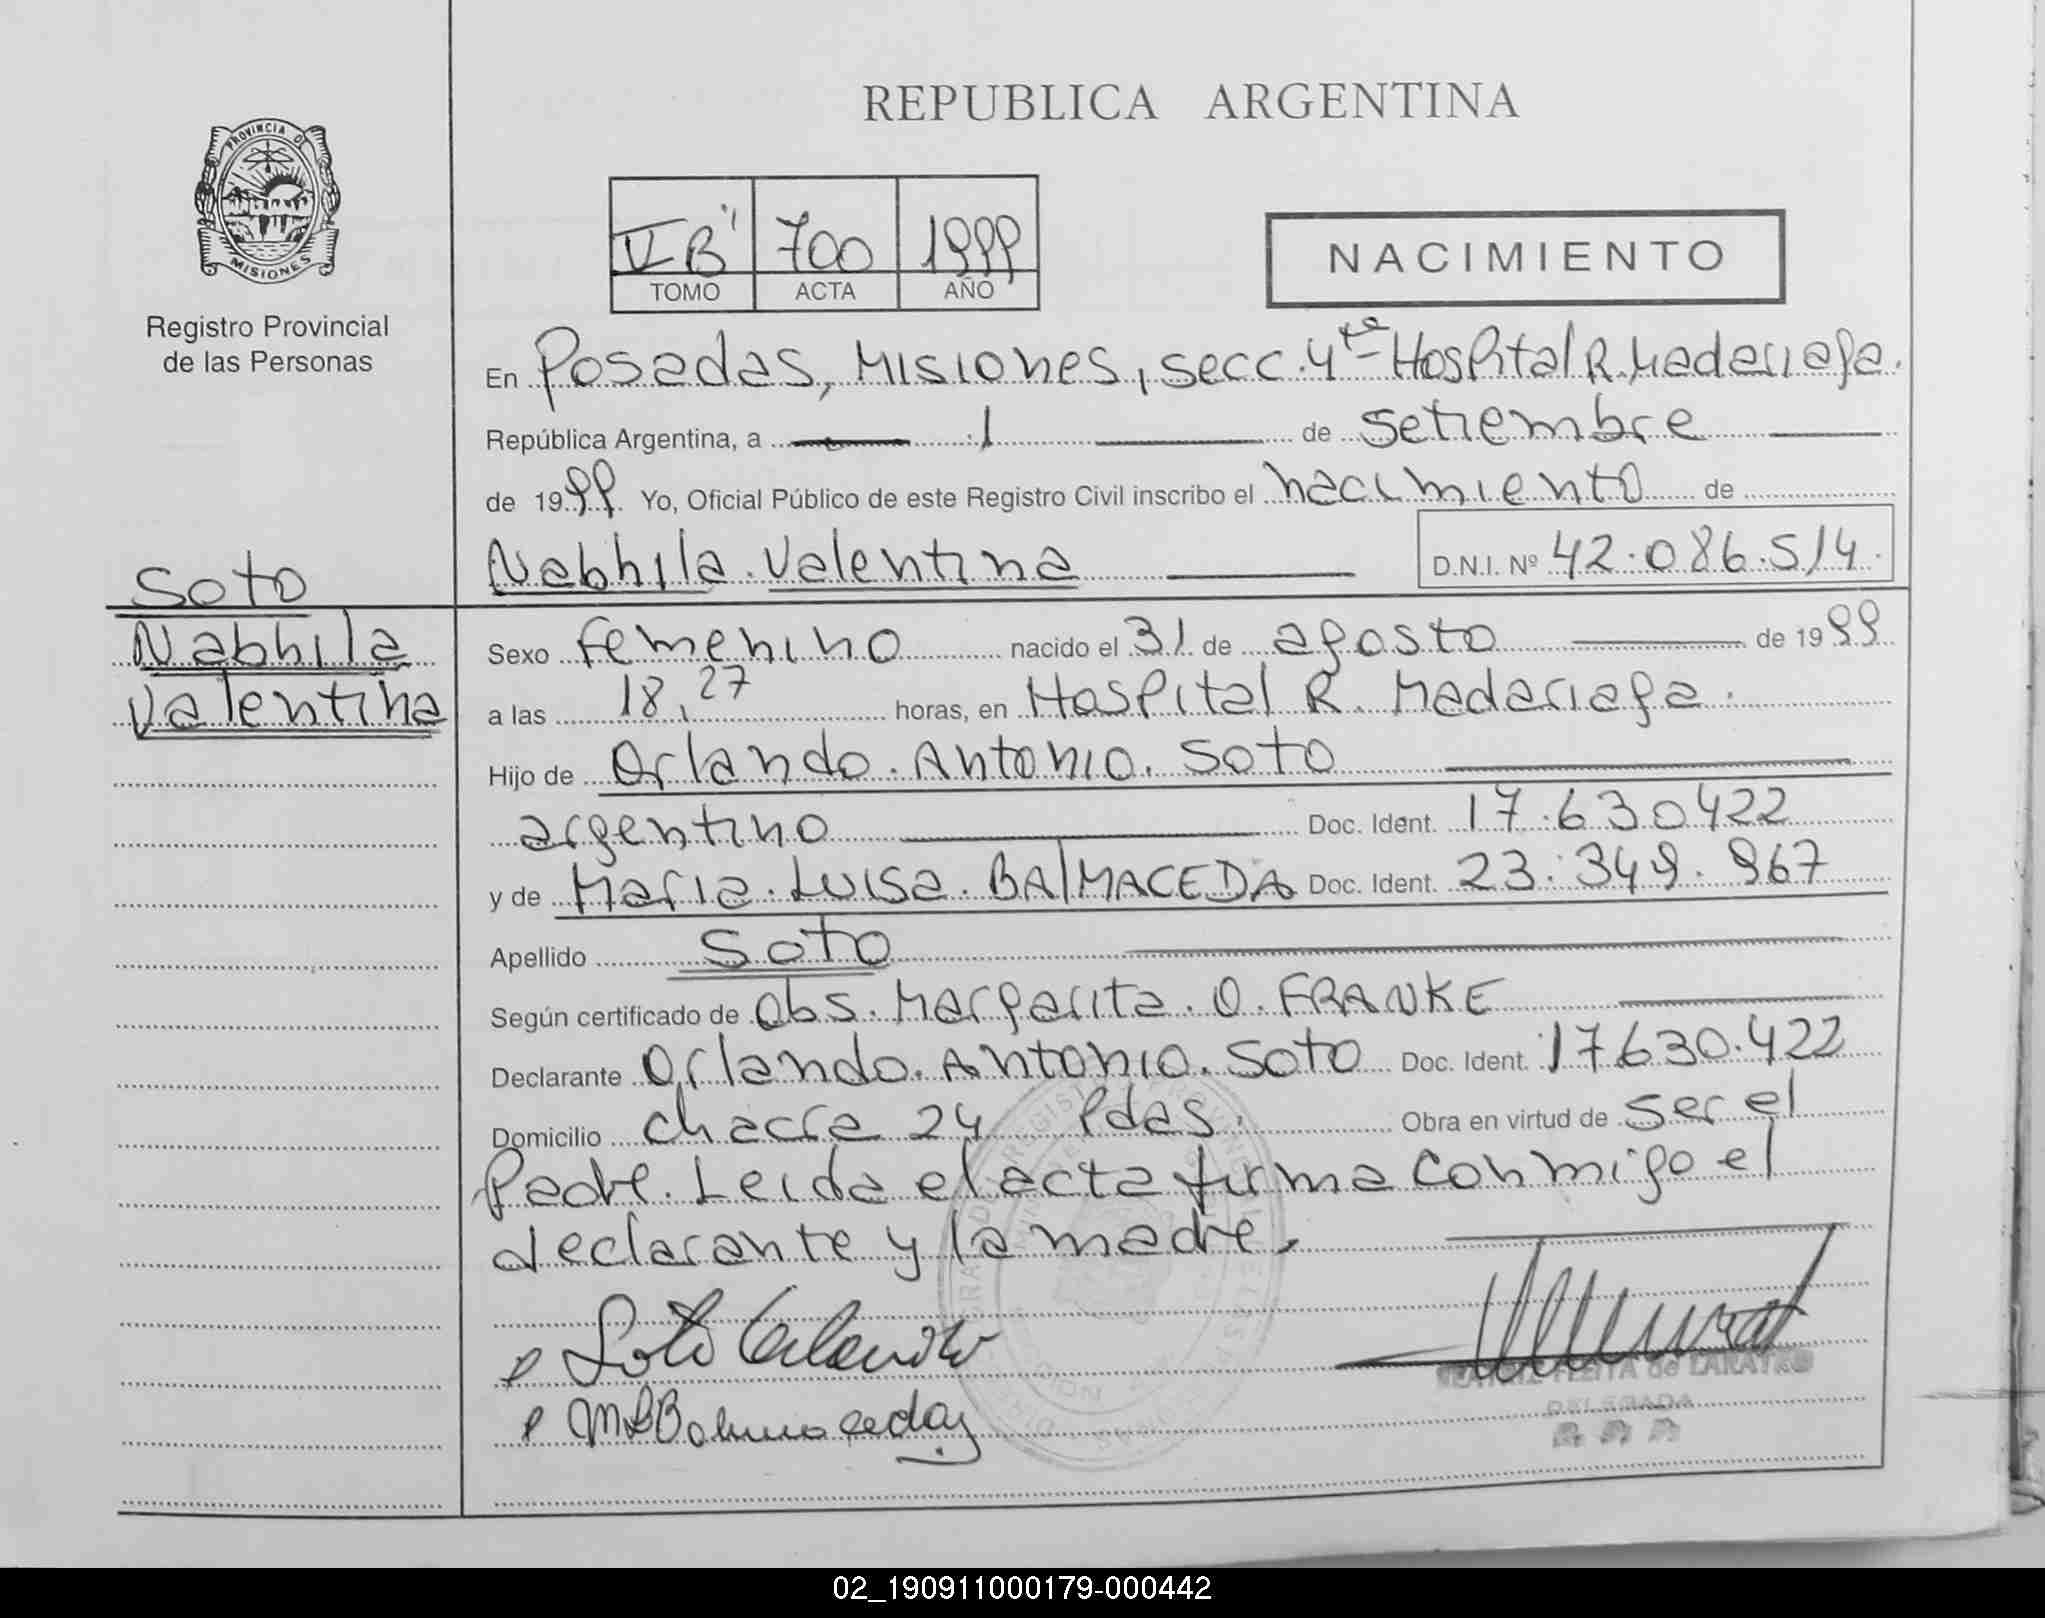 REPUBLICA ARGENTINA
PROVINCIA DE
MISIONES
Registro Provincial
de las Personas
VI"B" 700 1999
TOMO ACTA AÑO
NACIMIENTO
En Posadas, Misiones, secc. 4ta Hospital R. Madariaga.
República Argentina, a 1 de Setiembre
de 1999 Yo, Oficial Público de este Registro Civil inscribo el nacimiento de
Nabhila Valentina D.N.I. Nº 42.086.514.
Soto
Nabhila
Valentina
Sexo femenino nacido el 31 de agosto de 1999
a las 18,27 horas, en Hospital R. Madariaga.
Hijo de Orlando. Antonio. Soto
argentino Doc. Ident. 17.630422
y de Maria. Luisa. BALMACEDA Doc. Ident. 23.349.967
Apellido Soto
Según certificado de Obs. Margarita. O. FRANKE
Declarante Orlando. Antonio. Soto Doc. Ident. 17630.422
Domicilio chacra 24 Pdas. Obra en virtud de ser el
Padre. Leida el acta firma conmigo el
declarante y la madre.
Soto Orlando
MLBalmaceda
BEATRIZ FLEITA de
DELEGADA
02_190911000179-000442